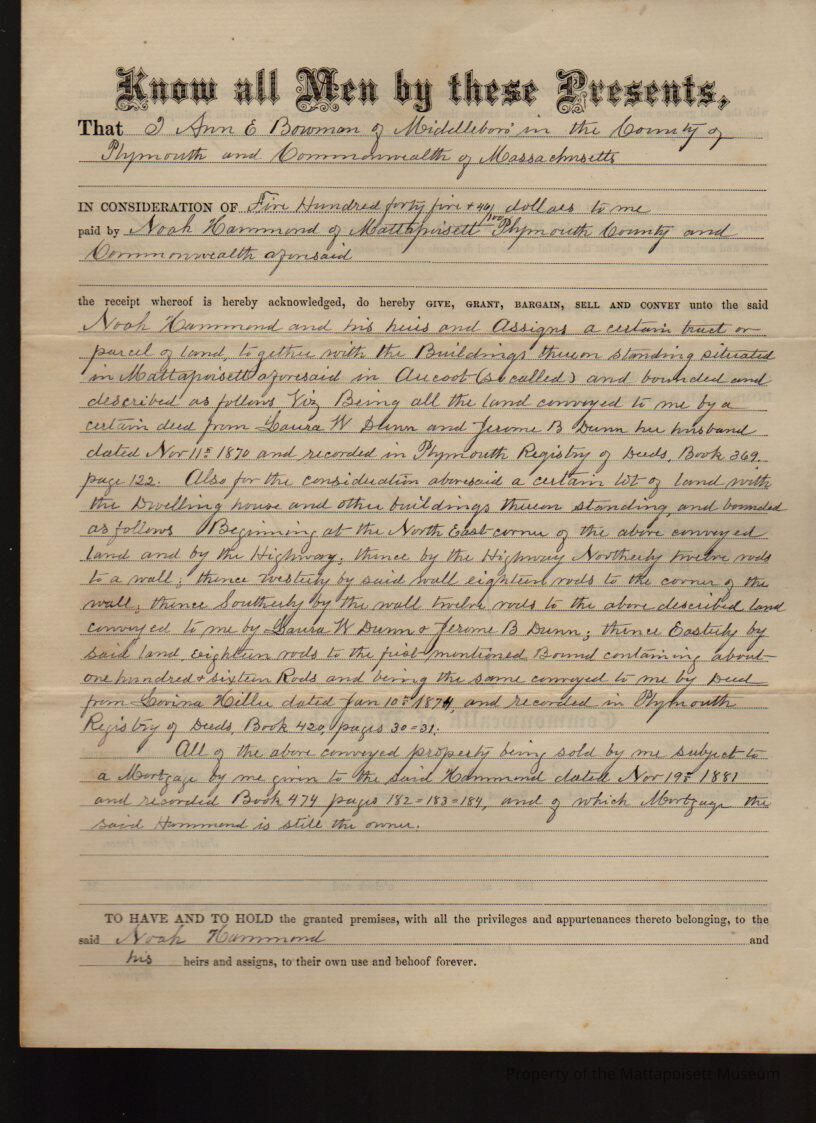 Know all Men by these Presents,
That I Ann E Bowman of Middleboro' in the County of
Plymouth and Commonwealth of Massachusetts
IN CONSIDERATION OF Five Hundred forty five + 46/100 dollars to me
paid by Noah Hammond of Mattapoisett Plymouth County and
Commonwealth aforesaid
the receipt whereof is hereby acknowledged, do hereby GIVE, GRANT, BARGAIN, SELL AND CONVEY unto the said
Noah Hammond and his heirs and Assigns a certain tract or
parcel of land, together with the Buildings thereon standing situated
in Mattapoisett aforesaid in Aucoot (so called) and bounded and
described as follows Viz Being all the land conveyed to me by a
certain deed from Laura W Dunn and Jerome B Dunn her husband
dated Nov 11th 1870 and recorded in Plymouth Registry of Deeds, Book 369.
page 122. Also for the consideration aforesaid a certain lot of land with
the Dwelling house and other buildings thereon standing, and bounded
as follows Beginning at the North East corner of the above conveyed
land and by the Highway; thence by the Highway Northerly twelve rods
to a wall; thence westerly by said wall eighteen rods to the corner of the
wall; thence Southerly by the wall twelve rods to the above described land
conveyed to me by Laura W Dunn & Jerome B Dunn; thence Easterly by
said land eighteen rods to the first mentioned Bound containing about
one hundred & sixteen Rods and being the same conveyed to me by Deed
from Lovina Hiller dated Jan 10th 1874, and recorded in Plymouth
Registry of Deeds, Book 420, pages 30=31.
All of the above conveyed property being sold by me subject to
a Mortgage by me given to the said Hammond dated Nov 19th 1881
and recorded Book 474 pages 182=183=184, and of which Mortgage the
said Hammond is still the owner.
TO HAVE AND TO HOLD the granted premises, with all the privileges and appurtenances thereto belonging, to the
said Noah Hammond and
his heirs and assigns, to their own use and behoof forever.
Property of the Mattapoisett Museum